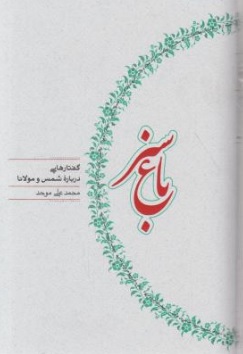 باغ سبز
گفتارهایی
دربارهٔ شمس و مولانا
محمدعلی موحد